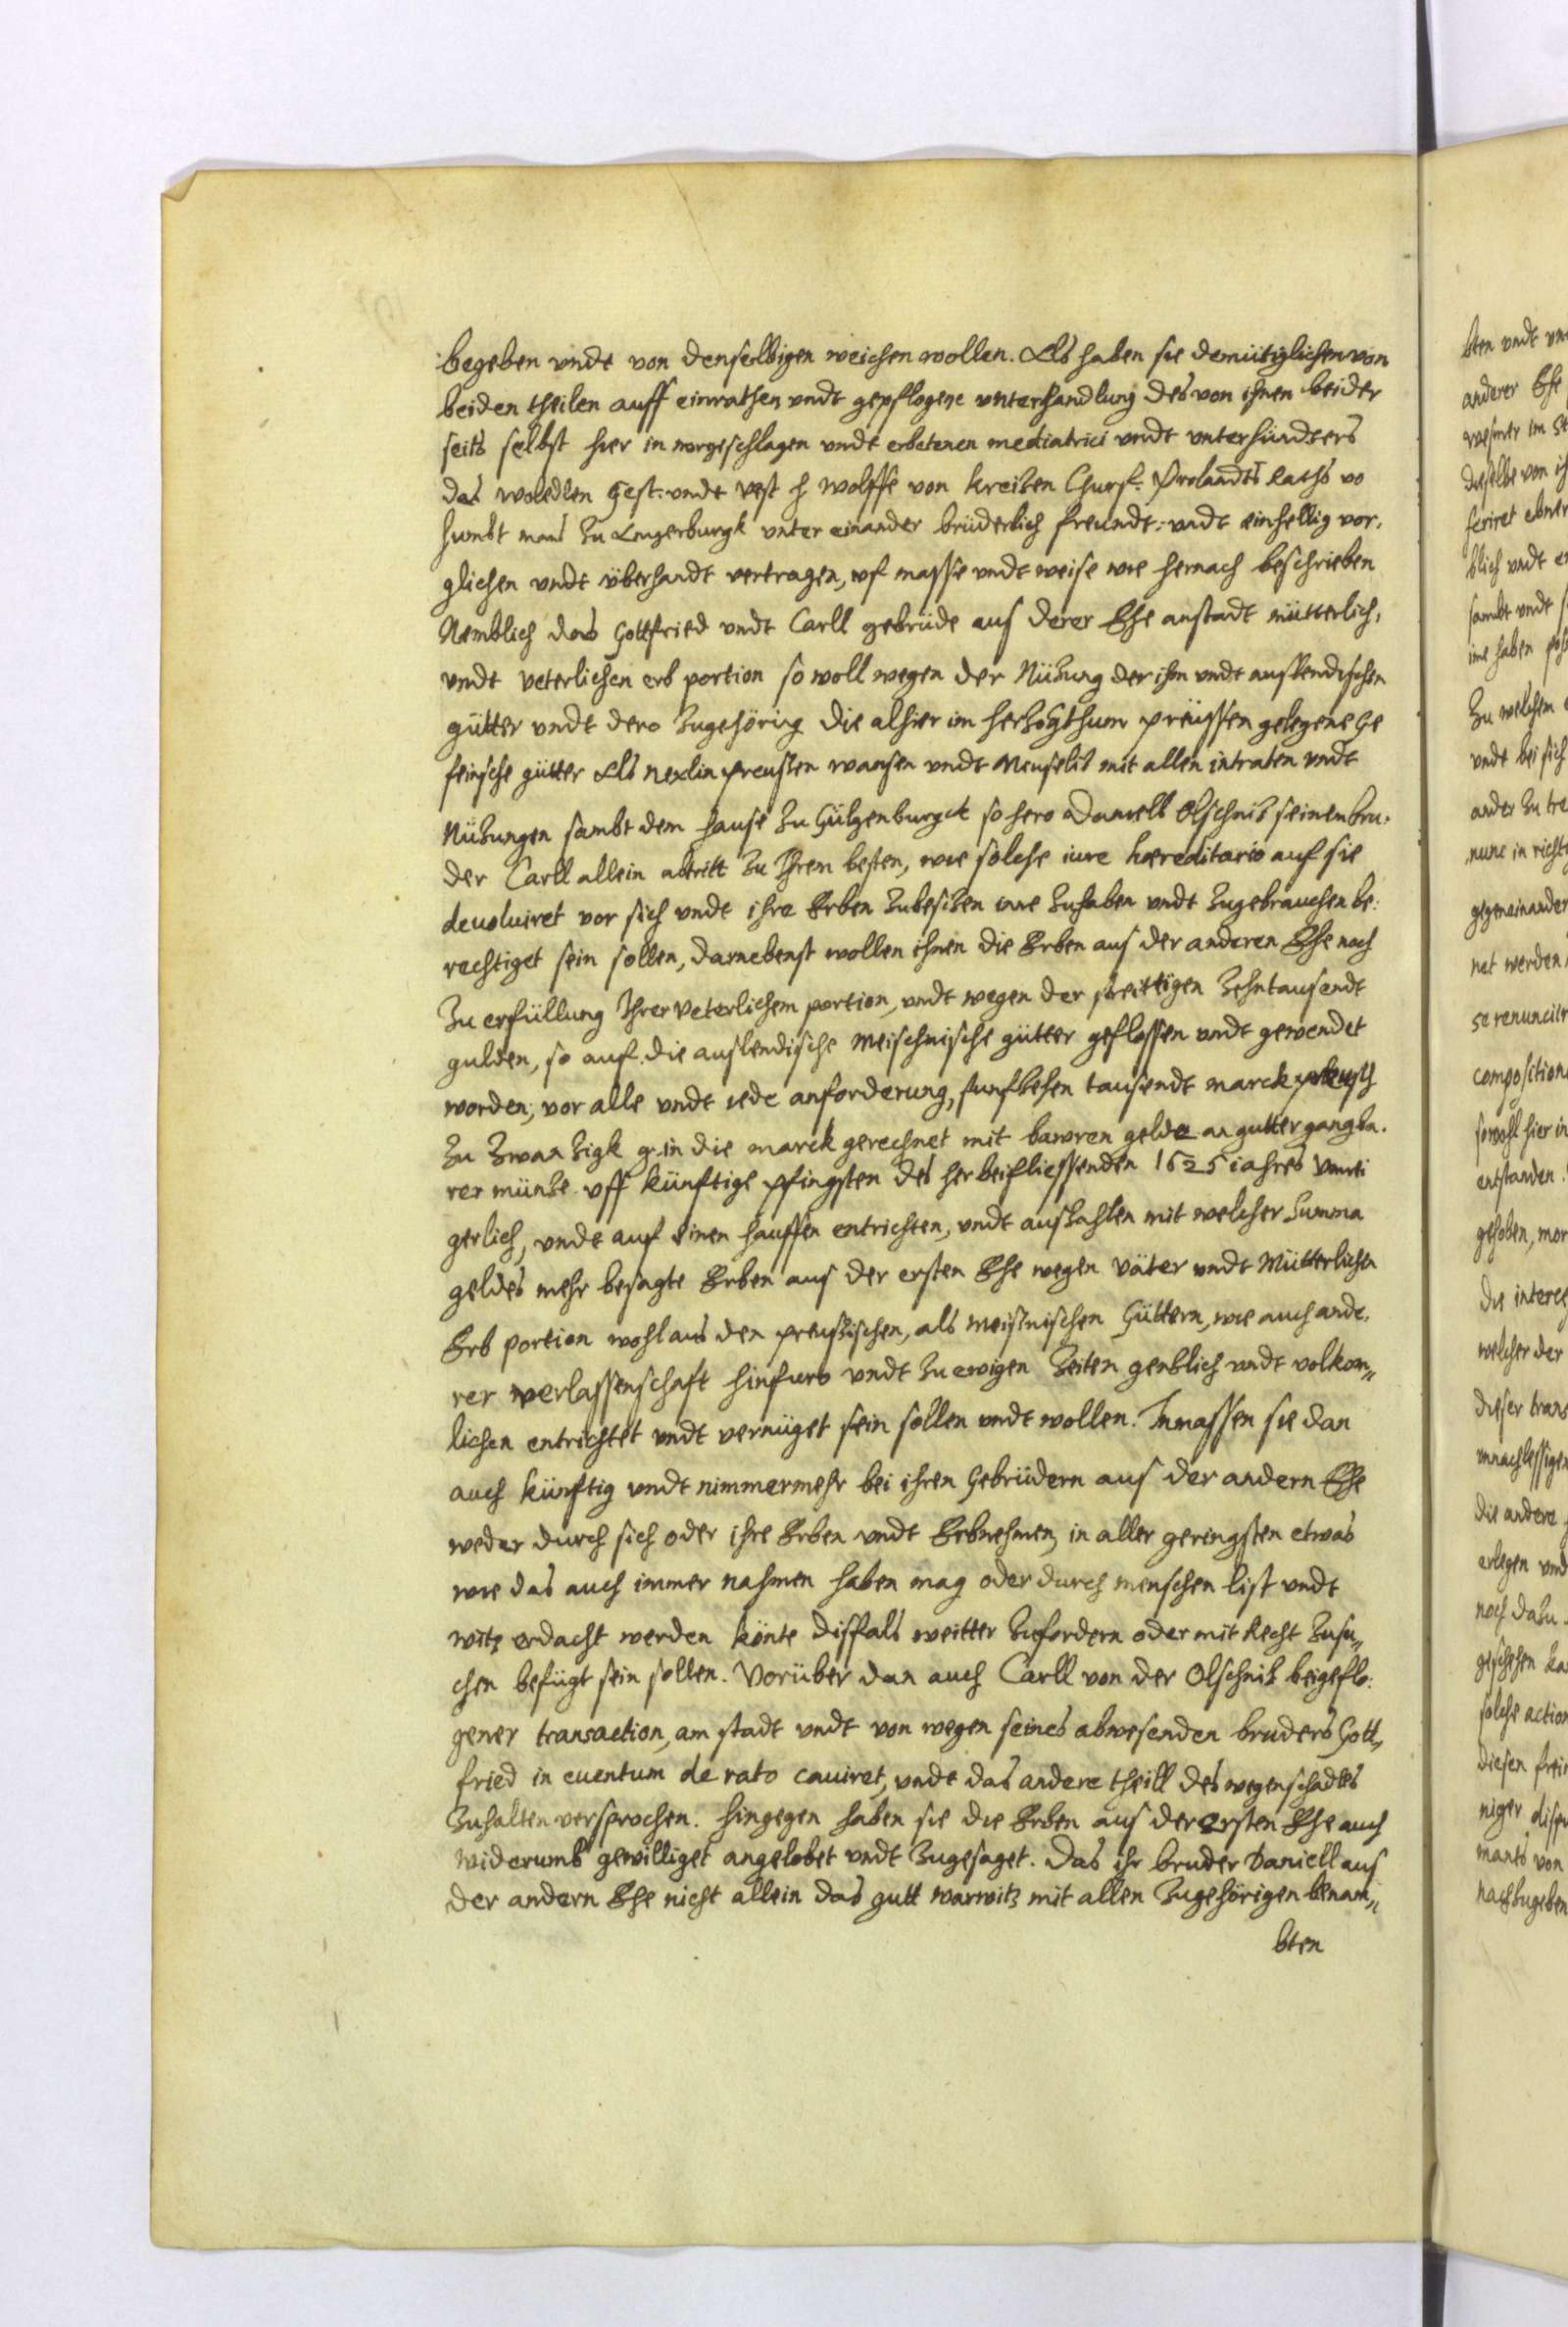 begeben vndt von denselbigen weichen wollen. Als haben sie demütiglichen von
beiden theilen auff einrathen vndt gepflogene vnterhandlung des von ihnen beider
seits selbst hier in vorgeschlagen vndt erbetenen mediatrici vndt vnterhändlers
des woledlen Gest: vndt vest h wolffe von kreitzen Churf: Raths vo
zu Angerburgk vnter einander brüderlich freundt: vndt einhellig vor,
glichen vndt überhandt vertragen, vf masse vndt weise wie hernach beschrieben
Nemblich das Gottfried vndt Carll gebrüde aus derer Ehe anstadt mütterlich,
vndt veterlichen erb portion so woll wegen der Nützung der ihn vndt auslendischen
gütter vndt dero zugehörig die alhier im hertzogthum preüssen gelegene Ge
feinsche gütter Als vndt mit allen intraten vndt
Nützungen sambt dem hause zu so hero Daniell Olschnitz seinem bru,
der Carll allein abtritt zu Ihrem besten, wie solche iure hæreditario auf sie
deuoluiret vor sich vndt ihre Erben zubesitzen inne zuhaben vndt zugebrauchen be:
rechtiget sein sollen, darnebenst wollen ihnen die Erben aus der anderen Ehe noch
zu erfüllung Ihrer veterlichem portion, vndt wegen der streittigen zehntausendt
gulden, so auf die auslendische Meischnische gütter geflossen vndt gewendet
worden, vor alle vndt iede anforderung, funfzehen tausendt marck preusch
zu zwanzigk gr. in die marck gerechnet mit bawren gelde an gutter gangba.
rer müntze vff künftige pfingsten des herbeifliessenden 1625 iahres vnwei
gerlich, vndt auf einen hauffen entrichten, vndt auszahlen mit welcher Summa
geldes mehr besagte Erben aus der ersten Ehe wegen väter vndt Mütterlicher
Erb portion wohl aus den preussischen, als meisnischen Güttern, wie auch ande,
rer verlassenschaft hinfuro vndt zu ewigen zeiten gentzlich vndt volkom„
lichen entrichtet vndt vernüget sein sollen vndt wollen. Inmassen sie dan
auch künftig vndt nimmermehr bei ihren Gebrüdern aus der andern Ehe
weder durch sich oder ihre Erben vndt Erbnehmen, in aller geringsten etwas
wie das auch immer nahmen haben mag oder durch menschen list vndt
witz erdacht werden könte disfals weitter zufordern oder mit Recht zusu„
chen befügt sein sollen. Vorüber dan auch Carll von der Olschnitz beigeflo:
gener transaction, am stadt vndt von wegen seines abwesenden bruders Gott„
fried in euentum de rato cauiret, vndt das andere theill des wegen schadlos
zuhalten versprochen. hingegen haben sie die Erben aus der ersten Ehe auch
widerumb gewilliget angelobet vndt zugesaget. das ihr bruder Daniell aus
der andern Ehe nicht allein das gutt warwitz mit allen zugehörigen benam„
bten
bten vndt
anderer Ehe
dieselbe von
sambt vndt
zu welchem
vndt bei sich
ander zu
gegeneinander
net werden
se
composition
sowohl hier in
entstanden
gehoben,
welcher der
dieser trans
die andere
erlegen vnd
noch dazu
geschehen
solche action
diesen
niger
von
nachzugeben